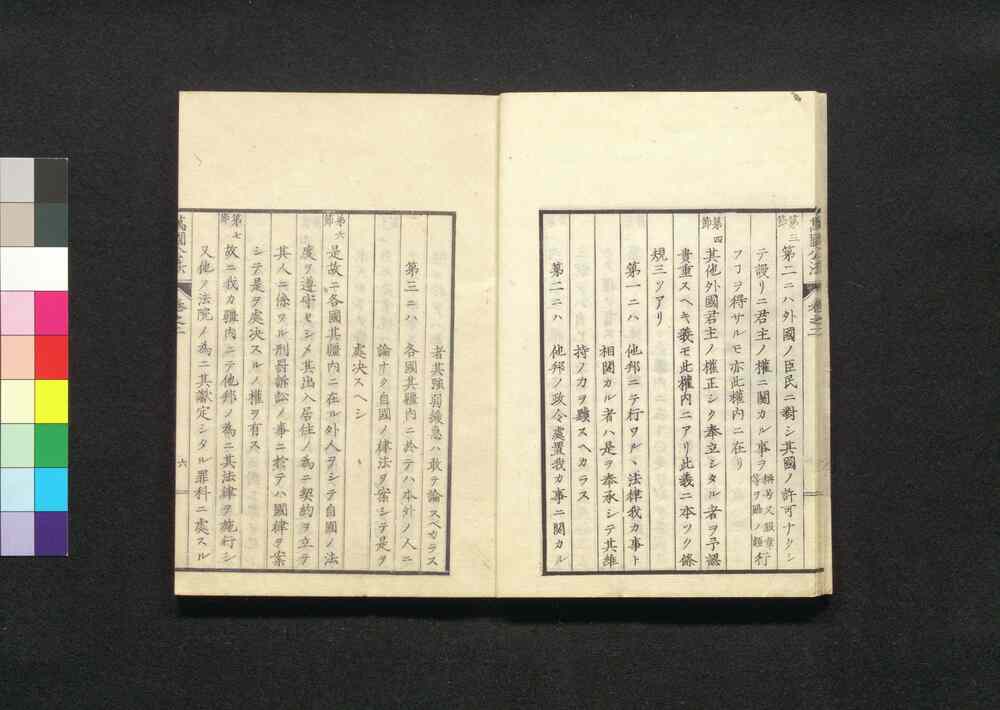 萬國公法
卷之二
第三節
第二ニハ外國ノ臣民ニ對シ其國ノ許可ナクシ
テ謾リニ君主ノ權ニ關カル事ヲ
稱号又服章
等ヲ賜ノ類
行
フヿヲ得サルモ亦此權内ニ在リ
第四節
其他外國君主ノ權正シク奉立シタル者ヲ予認
貴重スヘキ義モ此權内ニアリ此義ニ本ツク條
規三ツアリ
第一ニハ 他邦ニテ行ワルヽ法律我カ事ト
相関カル者ハ是ヲ奉承シテ其維
持ノカヲ竭スヘカラス
第二ニハ 他邦ノ政令處置我カ事ニ関カル
者其強弱緩急ハ敢テ論スヘカラス
第三ニハ 各國其疆内ニ於テハ本外ノ人ニ
論ナク自國ノ律法ヲ案シテ是ヲ
處决スヘシ
第六節
是故ニ各國其疆内ニ在ル外人ヲシテ自國ノ法
度ヲ遵守セシメ其出入居住ノ為ニ契約ヲ立テ
其人ニ係ワル刑罰訴訟ノ事ニ於テハ國律ヲ案
シテ是ヲ處决スルノ權ヲ有ス
第七節
故ニ我カ疆内ニテ他邦ノ為ニ其法律ヲ施行シ
又他ノ法院ノ為ニ其讞定シタル罪科ニ處スル
萬國公法
卷之二
六